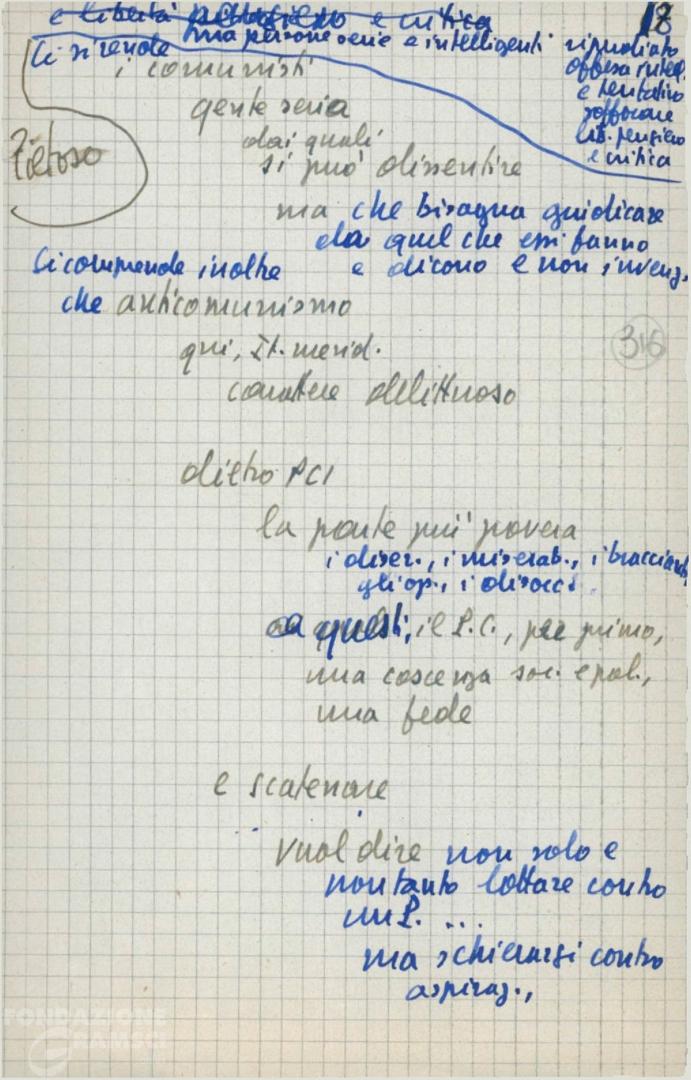 18
e libertà pensiero e critica
Ci si rende ma persone serie e intelligenti ripudiato
offesa intell.
e tentativo
soffocare
lib. pensiero
e critica
i comunisti
gente seria
dai quali
si può dissentire
Pietoso
ma che bisogna giudicare
da quel che essi fanno
e dicono e non invenz.
Si comprende inoltre
che anticomunismo
qui, It. merid.
316
carattere delittuoso
dietro PCI
la parte più povera
i diser., i miserab., i braccianti,
gli op., i disocc.
a questi, il P.C., per primo,
una coscienza soc. e pol.,
una fede
e scatenare
vuol dire non solo e
non tanto lottare contro
un P. ...
ma schierarsi contro
aspiraz.,
FONDAZIONE
GRAMSCI